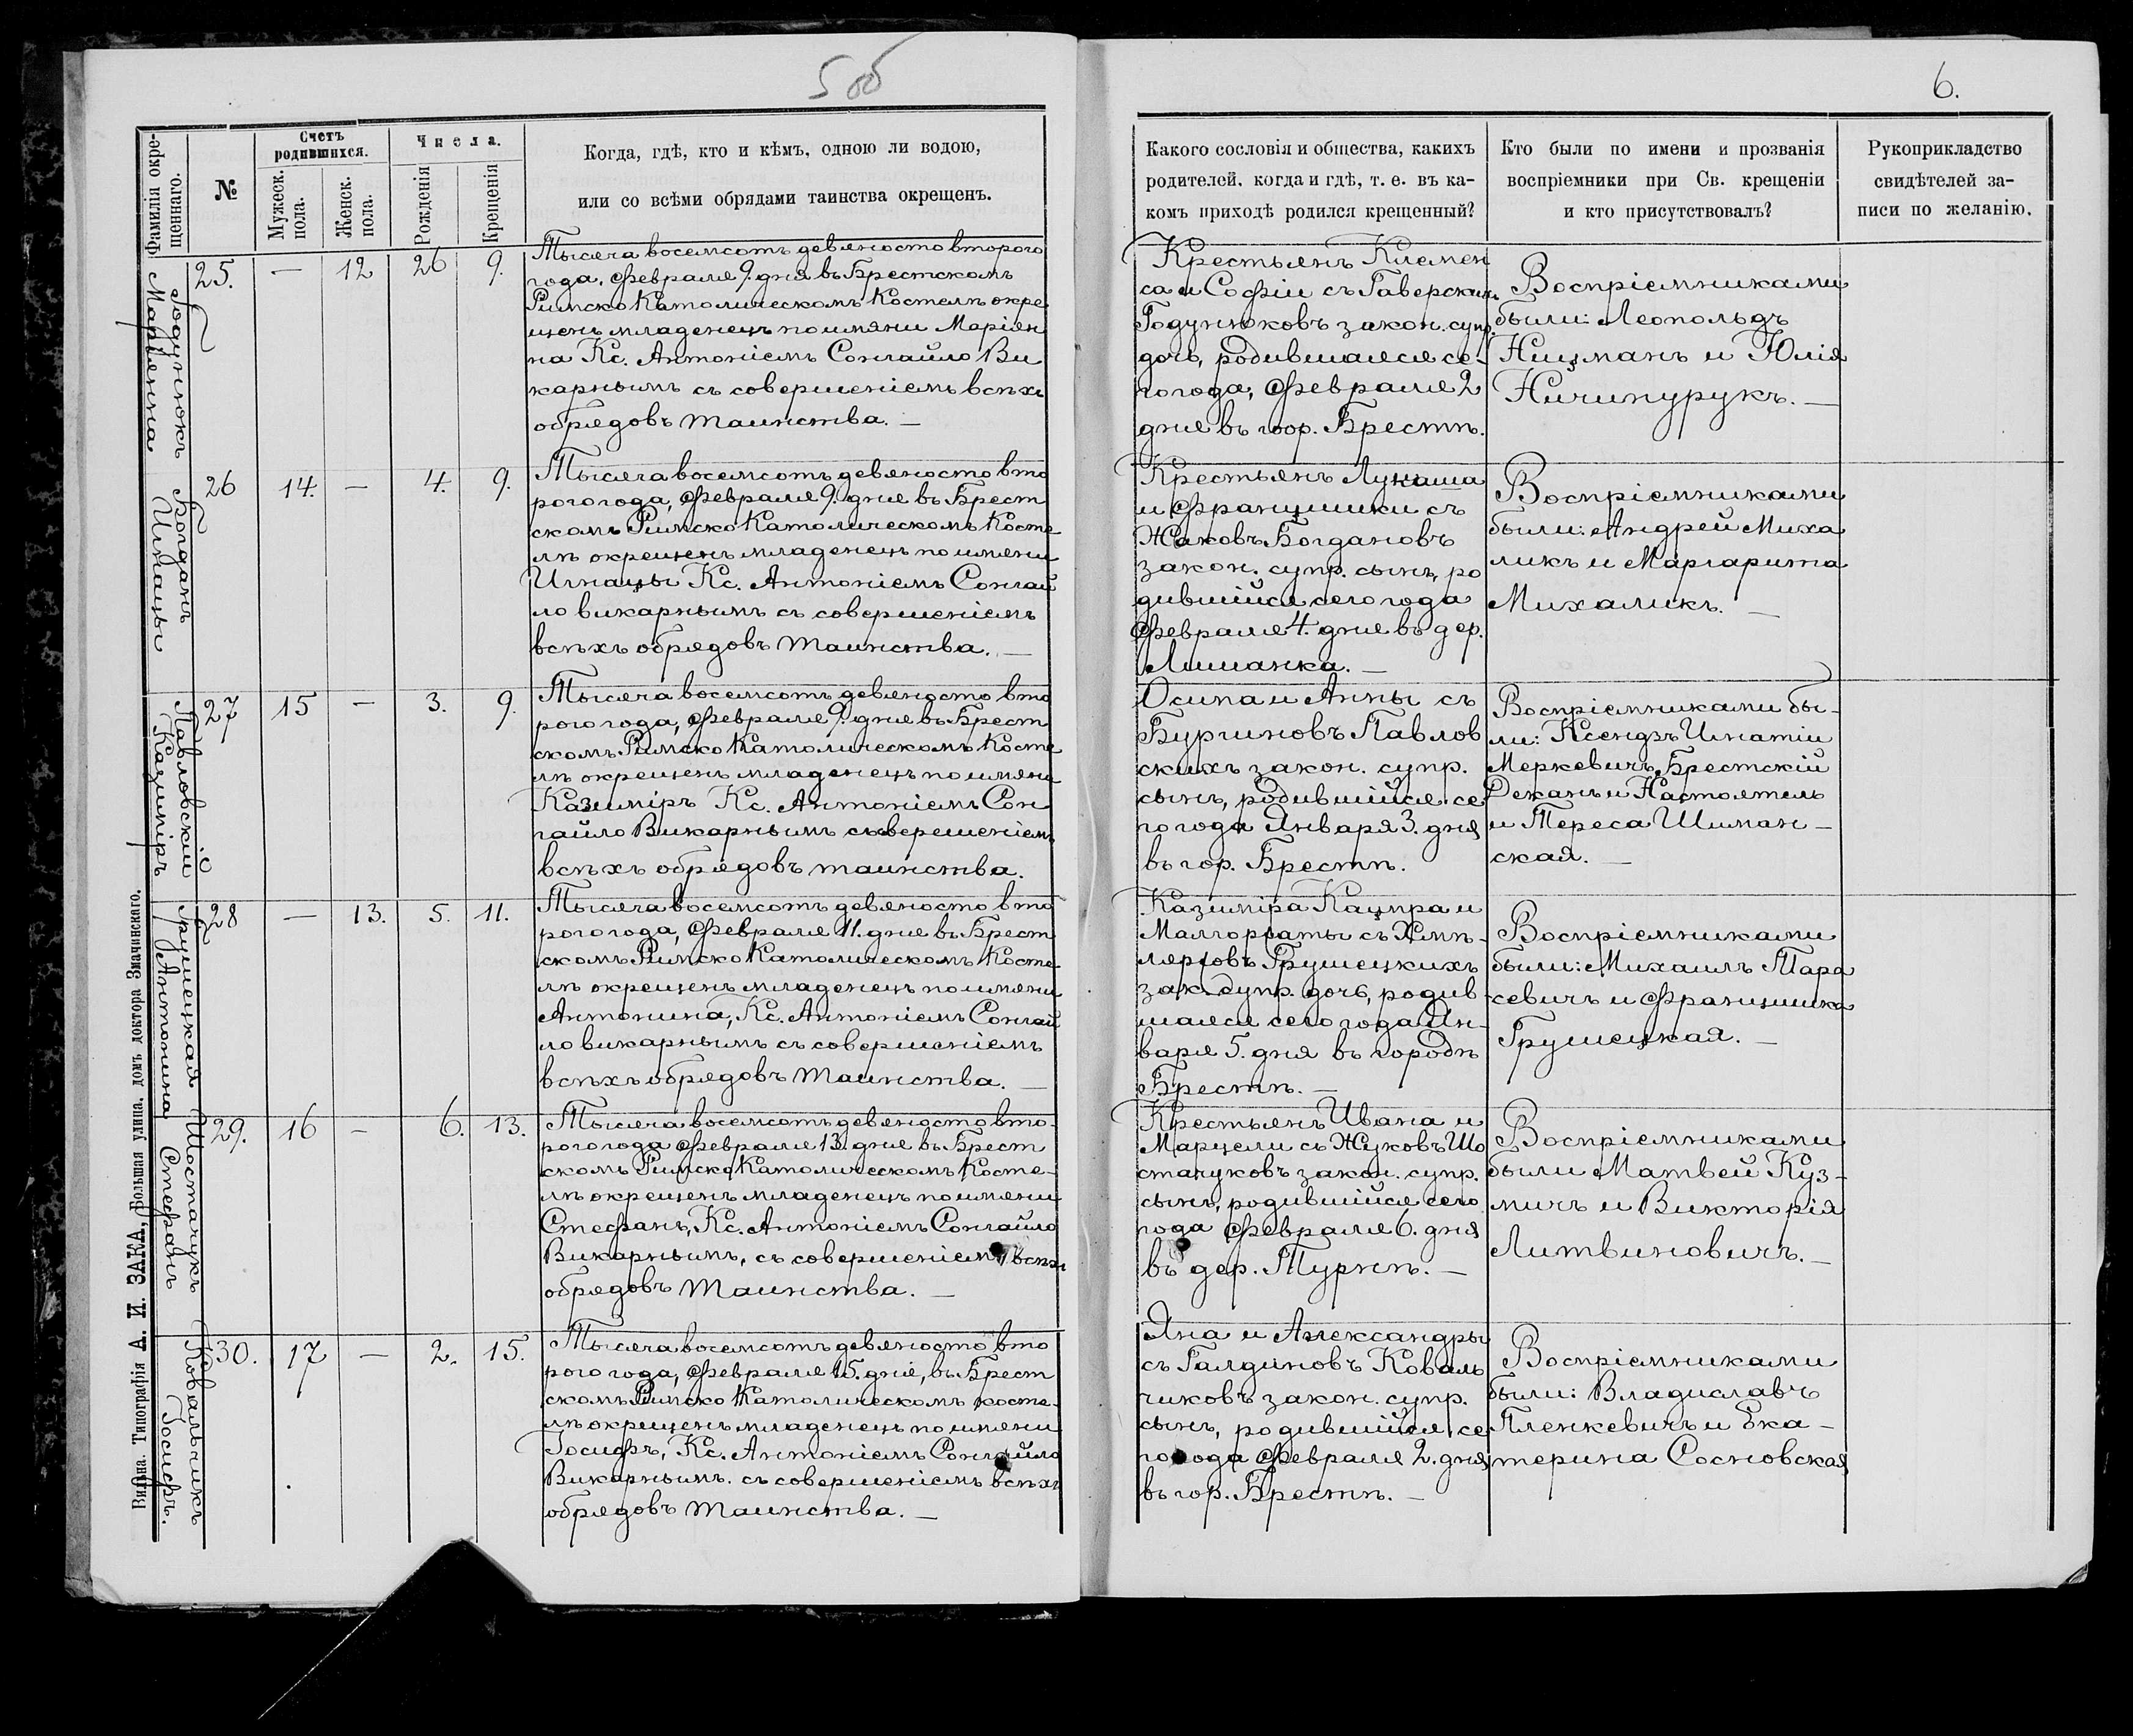 5 об
6.
Фамилія окре-
щеннаго.
№
Счетъ
родившихся.
Мужеск.
пола.
Женск.
пола.
Числа.
Рожденія
Крещенія
Когда, гдѣ, кто и кѣмъ, одною ли водою,
или со всѣми обрядами таинства окрещенъ.
Какого сословія и общества, какихъ
родителей, когда и гдѣ, т. е. въ ка-
комъ приходѣ родился крещенный?
Кто были по имени и прозванія
воспріемники при Св. крещеніи
и кто присутствовалъ?
Рукоприкладство
свидѣтелей за-
писи по желанію.
Годунюкъ
Маріянна
25.
—
12
26
9.
Тысяча восемсотъ девяносто второго
года, Февраля 9. дня въ Брестскомъ
Римско Католическомъ Костелѣ окре
щенъ младенецъ по имяни Маріян
на Кс. Антоніемъ Сонгайло Ви
карнымъ съ совершеніемъ всѣхъ
обрядовъ таинства. —
Крестьянъ Клемен
са и Софіи съ
Годунюковъ закон. супр.
дочь, родившаяся се-
го года, Февраля 2
дня въ гор. Брестѣ.
Воспріемниками
были: Леопольдъ
Ницманъ и Юлія
Ничипурукъ. —
Богданъ
Игнацы
26
14.
—
4.
9.
Тысяча восемсотъ девяносто вто
рого года, Февраля 9. дня въ Брест
скомъ Римско Католическомъ Косте
лѣ окрещенъ младенецъ по имяни
Игнацы Кс. Антоніемъ Сонгай
ло викарнымъ съ совершеніемъ
всѣхъ обрядовъ таинства. —
Крестьянъ Лукаша
и Францишки съ
Жаковъ Богдановъ
закон. супр. сынъ, ро
дившійся сего года
Февраля 4. дня въ дер.
Лишанка. —
Воспріемниками
были: Андрей Миха
ликъ и Маргарита
Михаликъ. —
Павловскій
Казиміръ
27
15
—
3.
9.
Тысяча восемсотъ девяносто вто
рого года, Февраля 9. дня въ Брест
скомъ Римско Католическомъ Косте
лѣ окрещенъ младенецъ по имяни
Казиміръ Кс. Антоніемъ Сон
гайло Викарнымъ съ совершеніемъ
всѣхъ обрядовъ таинства.
Осипа и Анны съ
Бургиновъ Павлов
скихъ закон. супр.
сынъ, родившійся се
го года Января 3. дня
въ гор. Брестѣ.
Воспріемниками бы-
ли: Ксендзъ Игнатіи
Меркевичъ, Брестскій
Деканъ и Настоятель
и Тереса Шиман-
ская. —
Грушецкая
Антонина
28
—
13.
5.
11.
Тысяча восемсотъ девяносто вто
рого года, Февраля 11. дня въ Брест
скомъ Римско Католическомъ Косте
лѣ окрещенъ младенецъ по имяни
Антонина, Кс. Антоніемъ Сонгай
ло викарнымъ съ совершеніемъ
всѣхъ обрядовъ таинства. —
Казиміра Кацпра и
Малгорзаты съ
Грушецкихъ
зак. супр. дочь, родив-
шаяся сего года Ян-
варя 5. дня въ городѣ
Брестѣ. —
Воспріемниками
были: Михаилъ Тара
севичъ и Францишка
Грушецкая. —
Шостачукъ
Стефанъ
29.
16
—
6.
13.
Тысяча восемсотъ девяносто вто-
рого года Февраля 13. дня въ Брест
скомъ Римско Католическомъ Косте-
лѣ окрещенъ младенецъ по имяни
Стефанъ, Кс. Антоніемъ Сонгайло
Викарнымъ, съ совершеніемъ всѣхъ
обрядовъ таинства. —
Крестьянъ Ивана и
Марцели съ Жуковъ Шо
стачуковъ закон. супр.
сынъ, родившійся сего
года Февраля 6. дня
въ дер. Турнѣ. —
Воспріемниками
были Матвей Куз-
мичъ и Викторія
Литвиновичъ. —
Ковальчикъ
Іосифъ.
30.
17
—
2.
15.
Тысяча восемсотъ девяносто вто
рого года, Февраля 15. дня, въ Брест
скомъ Римско Католическомъ косте-
лѣ окрещенъ младенецъ по имяни
Іосифъ, Кс. Антоніемъ Сонгайло
Викарнымъ. съ совершеніемъ всѣхъ
обрядовъ таинства. —
Яна и Александры
съ Галдиновъ Коваль
чиковъ закон. супр.
сынъ, родившійся се
го года Февраля 2. дня
въ гор. Брестѣ. —
Воспріемниками
были: Владиславъ
Пленкевичъ и Ека-
терина Сосновская
Вильна. Типографія А. И. ЗАКА, Большая улица, домъ доктора Змачинскаго.